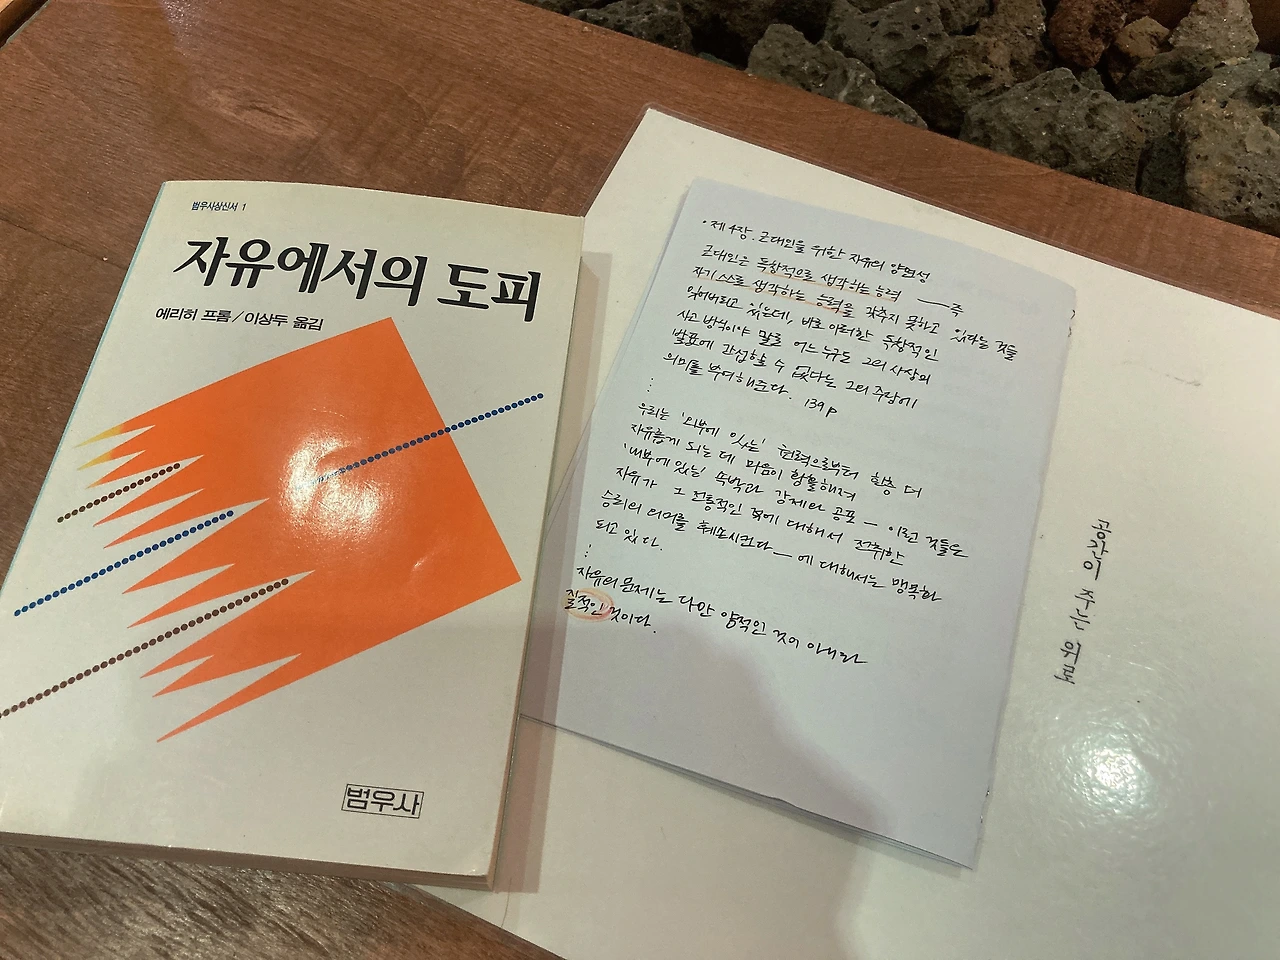 범우사상신서 1
자유에서의 도피
에리히 프롬/이상두 옮김
범우사
· 제 4장. 근대인을 위한 자유의 양면성
근대인은 독창적으로 생각하는 능력 — 즉
자기 스스로 생각하는 능력을 갖추지 못하고 있다는 것을
잊어버리고 있는데, 바로 이러한 독창적인
사고 방식이야 말로 어느 누구도 그의 사상의
발표에 간섭할 수 없다는 그의 주장에
의미를 부여해준다. 139p
⋮
우리는 '외부에 있는' 권력으로부터 한층 더
자유롭게 되는 데 마음이 황홀해져
'내부에 있는' 속박과 강제와 공포 — 이런 것들은
자유가 그 전통적인 적에 대해서 전취한
승리의 의미를 훼손시킨다 — 에 대해서는 맹목화
되고 있다.
⋮
자유의 문제는 다만 양적인 것이 아니라
질적인 것이다.
공간이 주는 위로